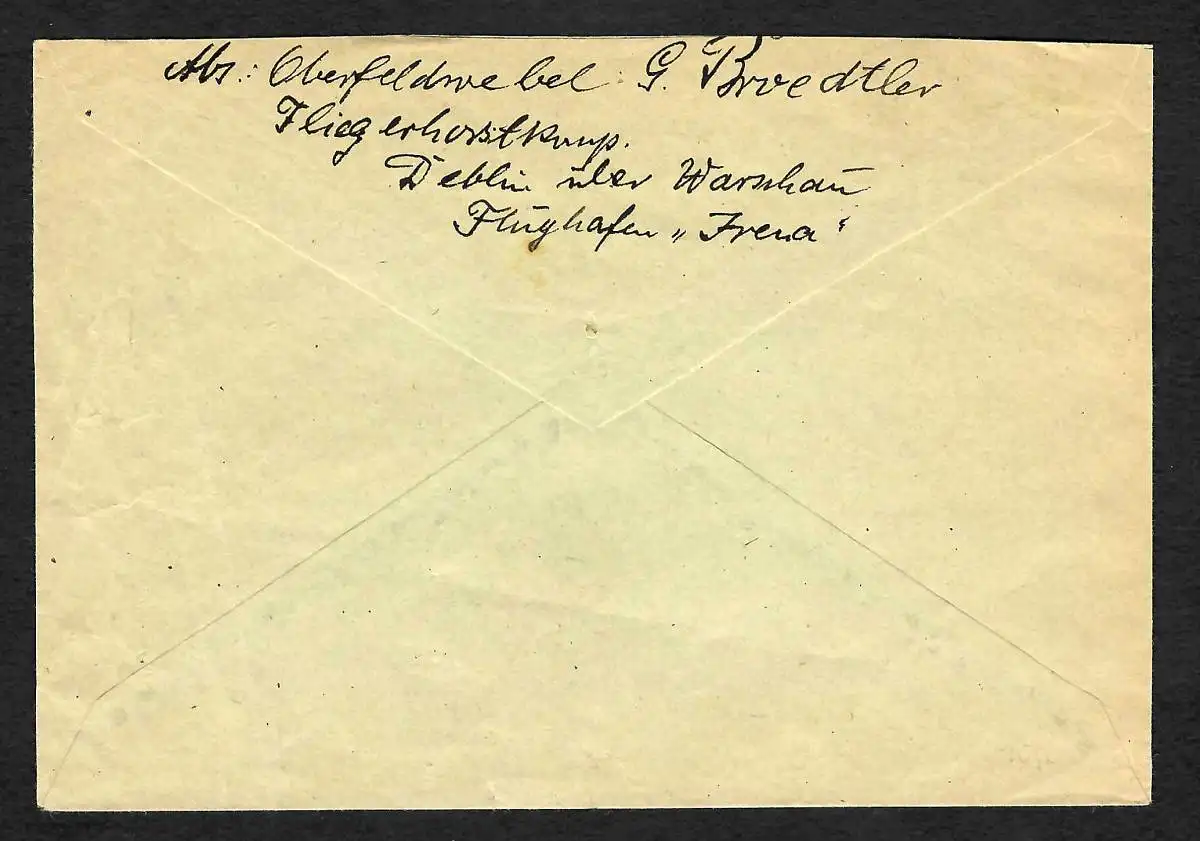 Abs.: Oberfeldwebel G. Broedtler
Fliegerhorstkomp.
Deblin über Warschau
Flughafen „Irena“